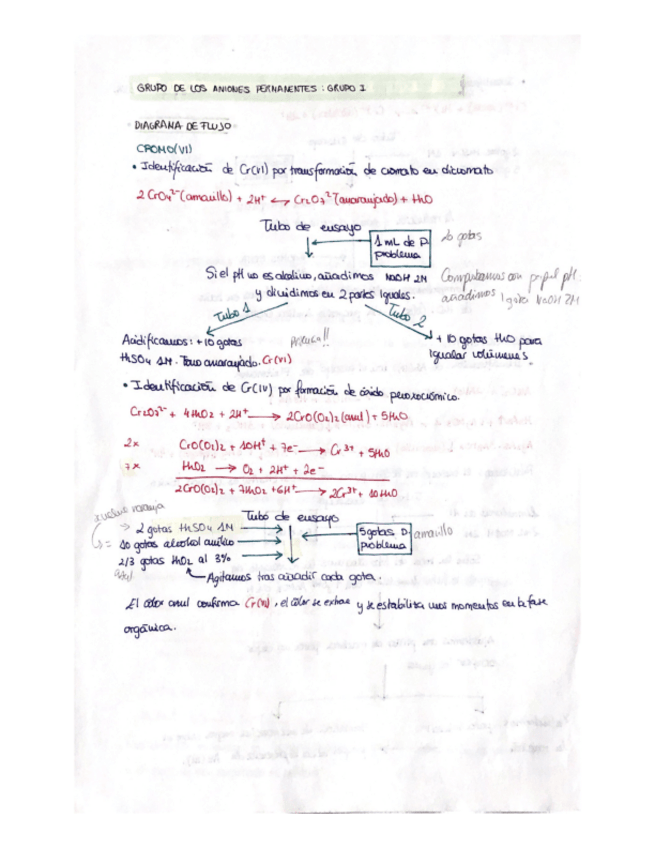 GRUPO DE LOS ANIONES PERMANENTES: GRUPO I
DIAGRAMA DE FLUJO
CROMO(VI)
• Identificación de Cr(VI) por transformación de cromato en dicromato
2 CrO4²⁻(amarillo) + 2H⁺ ⟷ Cr2O7²⁻(anaranjado) + H2O
Tubo de ensayo
1 mL de P.
problema
20 gotas
Si el pH no es alcalino, añadimos NaOH 2M
y dividimos en 2 partes iguales.
Comprobamos con papel pH.
añadimos 1 gota NaOH 2M
Tubo 1
Tubo 2
Acidificamos: + 10 gotas
H2SO4 1M. Tono anaranjado. Cr(VI)
+ 10 gotas H2O para
igualar volúmenes.
• Identificación de Cr(IV) por formación de ácido peroxocrómico.
Cr2O7²⁻ + 4H2O2 + 2H⁺ → 2CrO(O2)2 (azul) + 5H2O
2x CrO(O2)2 + 10H⁺ + 7e⁻ → Cr³⁺ + 5H2O
7x H2O2 → O2 + 2H⁺ + 2e⁻
2CrO(O2)2 + 7H2O2 + 6H⁺ → 2Cr³⁺ + 10H2O
naranja
Tubo de ensayo
→ 2 gotas H2SO4 1M
= 10 gotas alcohol amílico
2/3 gotas H2O2 al 3%
5 gotas D.
problema
amarillo
Agitamos tras añadir cada gota.
El color azul confirma Cr(VI), el color se extrae y se estabiliza unos momentos en la fase
orgánica.